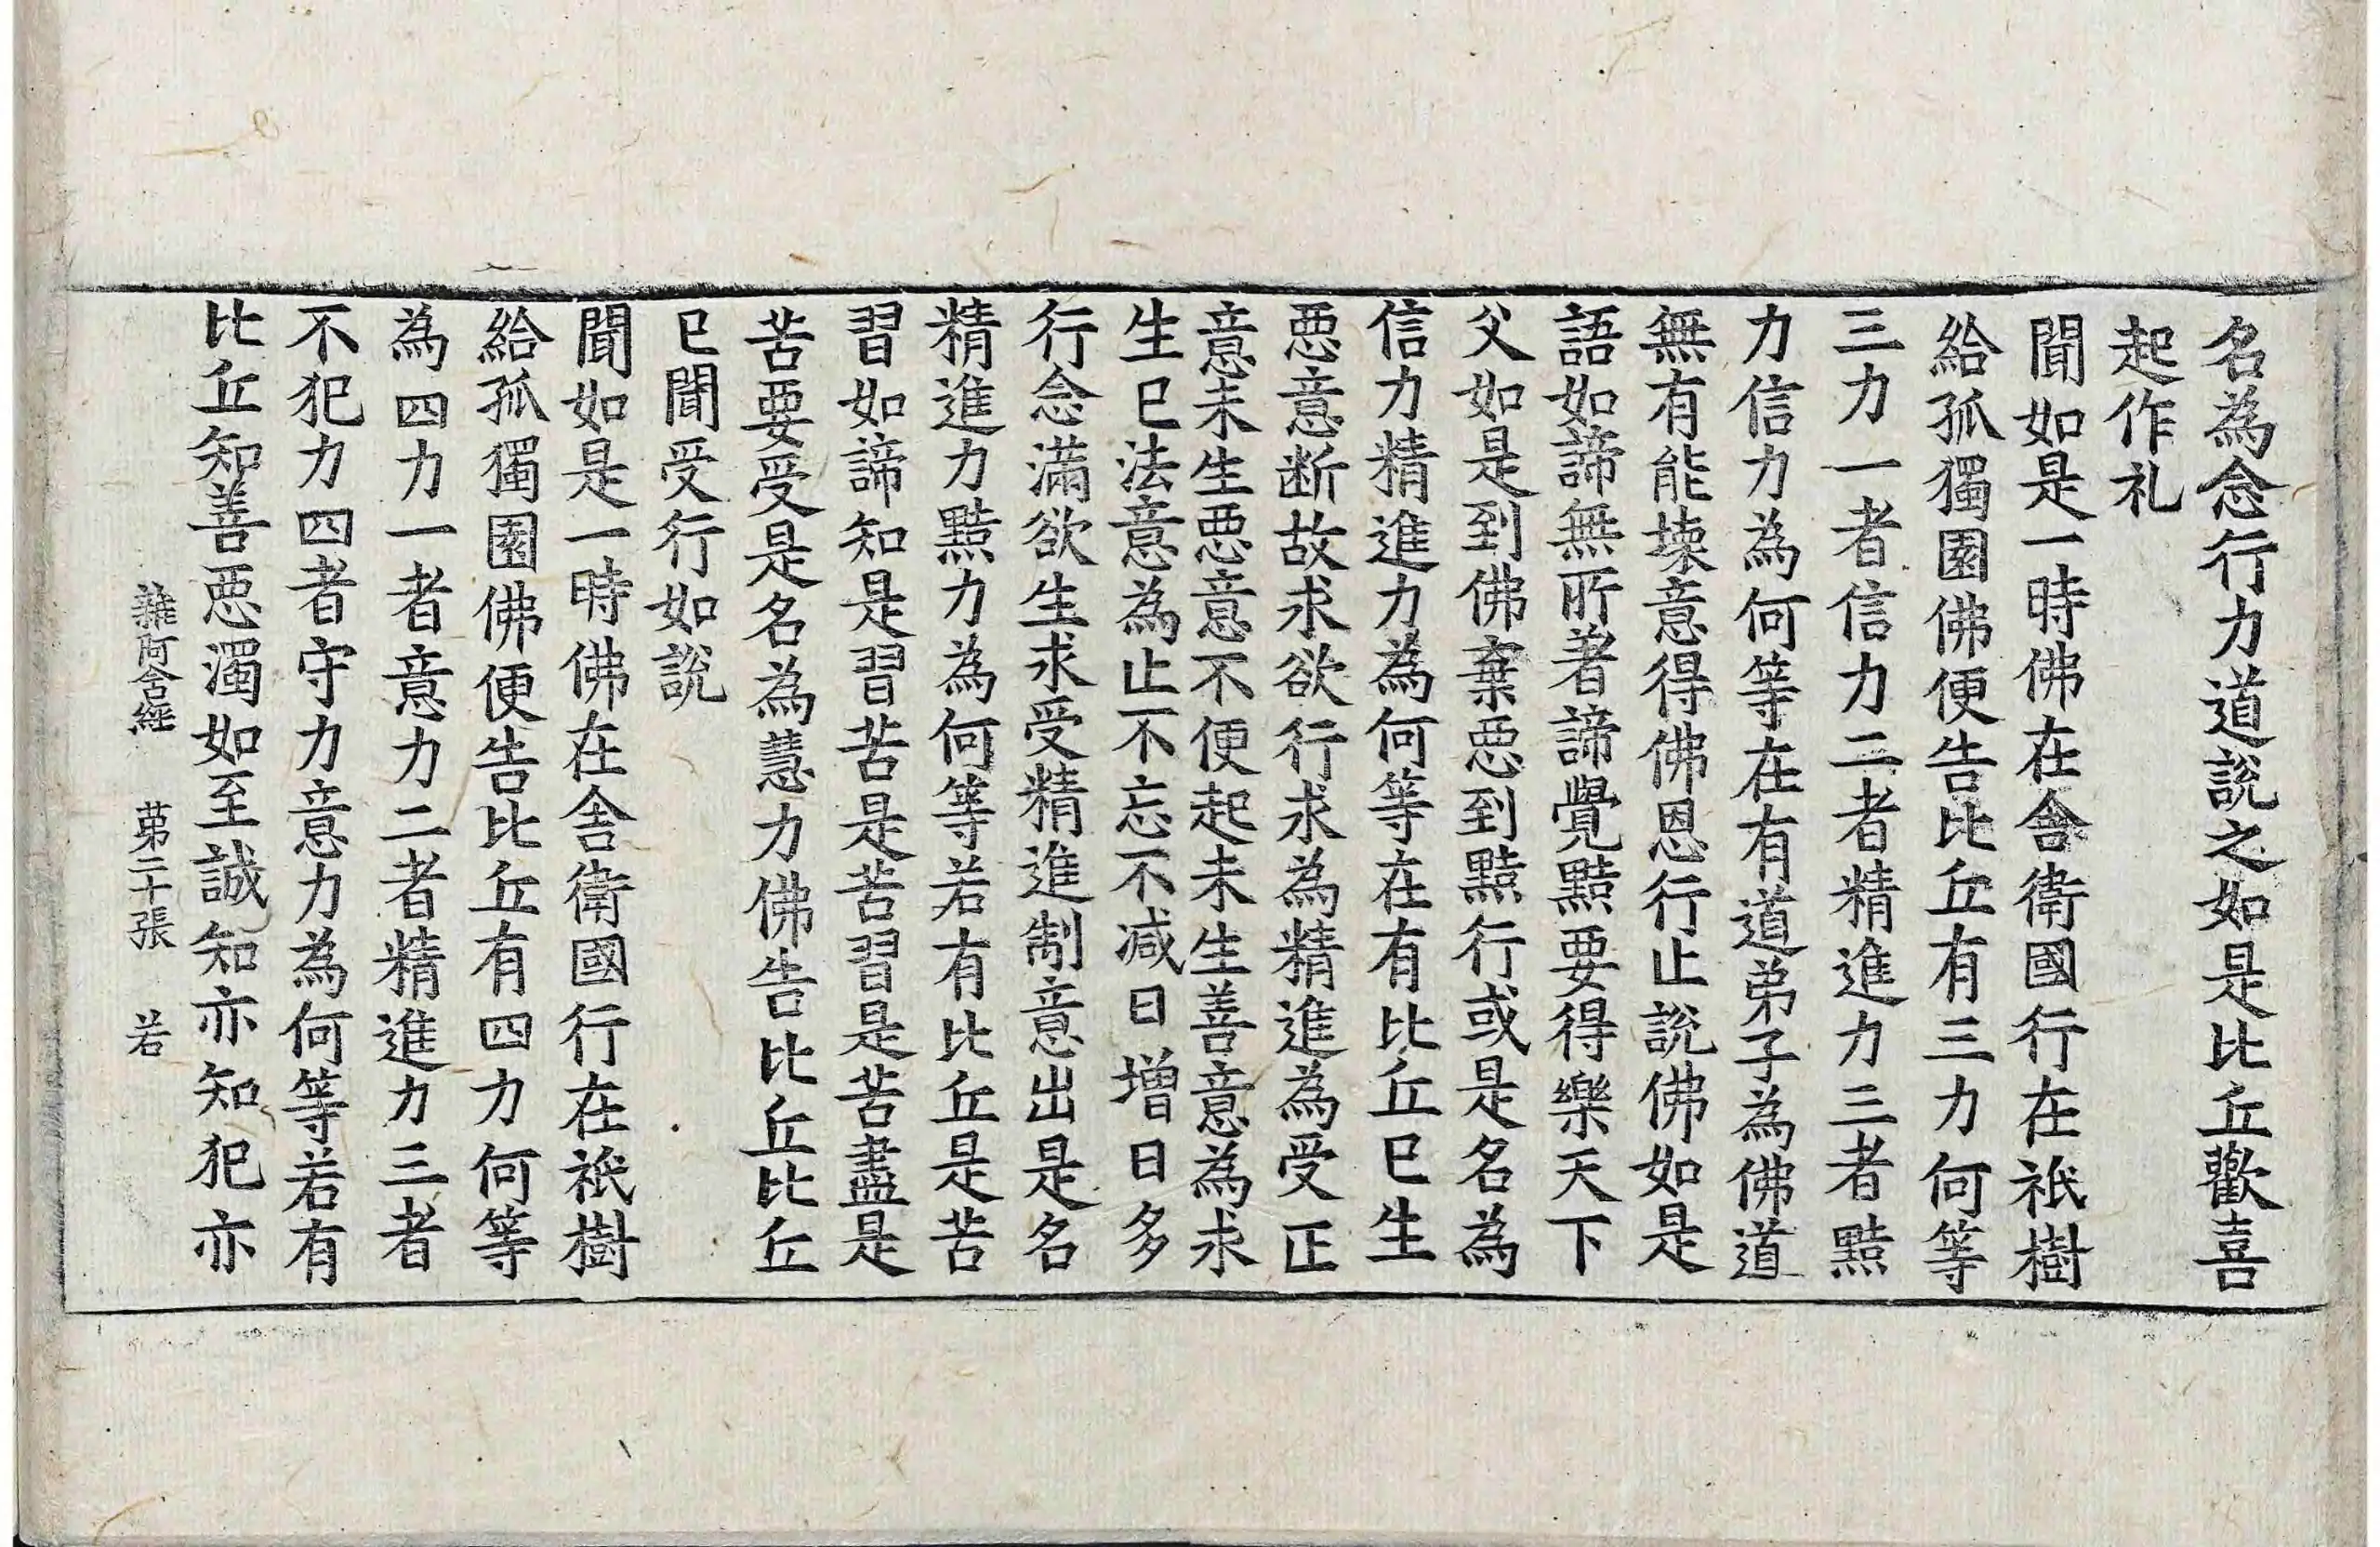 名為念行力道說之如是比丘歡喜
起作礼
聞如是一時佛在舍衛國行在祇樹
給孤獨園佛便告比丘有三力何等
三力一者信力二者精進力三者黠
力信力為何等在有道弟子為佛道
無有能壊意得佛恩行止說佛如是
語如諦無所著諦覺黠要得樂天下
父如是到佛棄惡到黠行或是名為
信力精進力為何等在有比丘已生
惡意断故求欲行求為精進為受正
意未生惡意不便起未生善意為求
生已法意為止不忘不减日增日多
行念滿欲生求受精進制意出是名
精進力黠力為何等若有比丘是苦
習如諦知是習苦是苦習是苦盡是
苦要受是名為慧力佛告比丘比丘
已聞受行如說
聞如是一時佛在舍衛國行在祇樹
給孤獨園佛便告比丘有四力何等
為四力一者意力二者精進力三者
不犯力四者守力意力為何等若有
比丘知善惡濁如至誠知亦知犯亦
雜阿含經 苐二十張 若